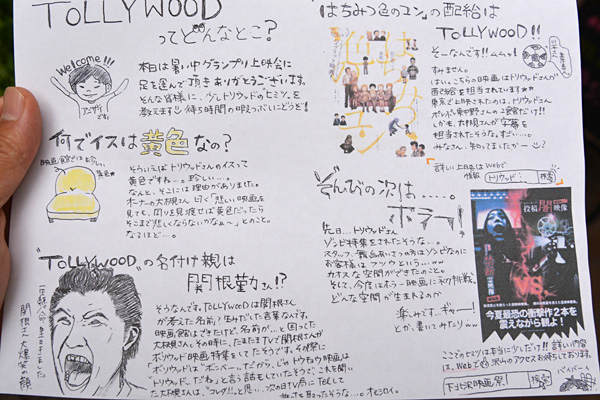 TOLLYWOOD
ってどんなとこ?
Welcome!!!
本日は暑い中グランプリ上映会に
足を運んで頂きありがとうございます。
そんな皆様に、プレトリウッドのヒミツを
教えます!
何でイスは黄色なの?
映画館では珍しい
黄色★
そういえばトリウッドさんのイスって
黄色ですねー。珍しい…。
なんと、そこには理由がありました。
オーナーの大槻さん曰く「悲しい映画を
見ても、周りを見渡せば黄色だったら
そこまで悲しくならないかなぁ〜」とのこと。
なるほどー。
"TOLLYWOOD"の名付け親は
関根勤さん!?
関根さん大爆笑の顔
そうなんです。TOLLYWOODは関根さん
が考えた名前!生みだした言葉なんです。
映画館はできたけど、名前が…と困った
大槻さん。その時に、たまたまTVで関根さんが
ボリウッド映画特集をしてたそうです。その際に
「ボリウッドは"ボンベー"だから、じゃトウキョウ映画は
"トリウッド"だね」と言う話もしていたそうで、これを聞い
た大槻さんは、"コレダ!!"と思い、次の日TV局にTELして
オモシロイ。
「はちみつ色のユン」の配給は
TOLLYWOOD!!
そーなんです!!ムムッ!
すみません。
はい。こちらの映画はトリウッドさんが
配給を担当されています★★
東京で上映されたのは、トリウッド
ポレポレ東中野さんの2館だけ!!
しかも、大槻さんが字幕を
担当されたそうな。すごい…。
みなさん、知ってましたか〜
はちみつ
色の
ユン
詳しい上映はWebで
トリウッド
検索
ぞんびの次は……。
ホラー!
先日…トリウッドさん
ゾンビ特集をされたそうな…。
お客様はフツウという…ww
カオスな空間ができたのこと。
そして、今度はホラー映画にネタ挑戦。
どんな空間が生まれるのか
楽みです。ギャー!
とか、書いてみたりww
投稿
闇
映像
VS
今夏最恐の衝撃作2本を
震えながら観よ!
ここでのヒミツは本当に少しだけ!!詳しい内容
は、Webで沢山のアクセスお待ちしております。
下北沢映画祭
検索
バイバーイ